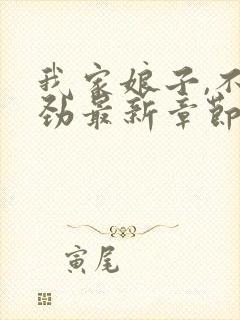 我家娘子,不
劲最新章節
寅尾